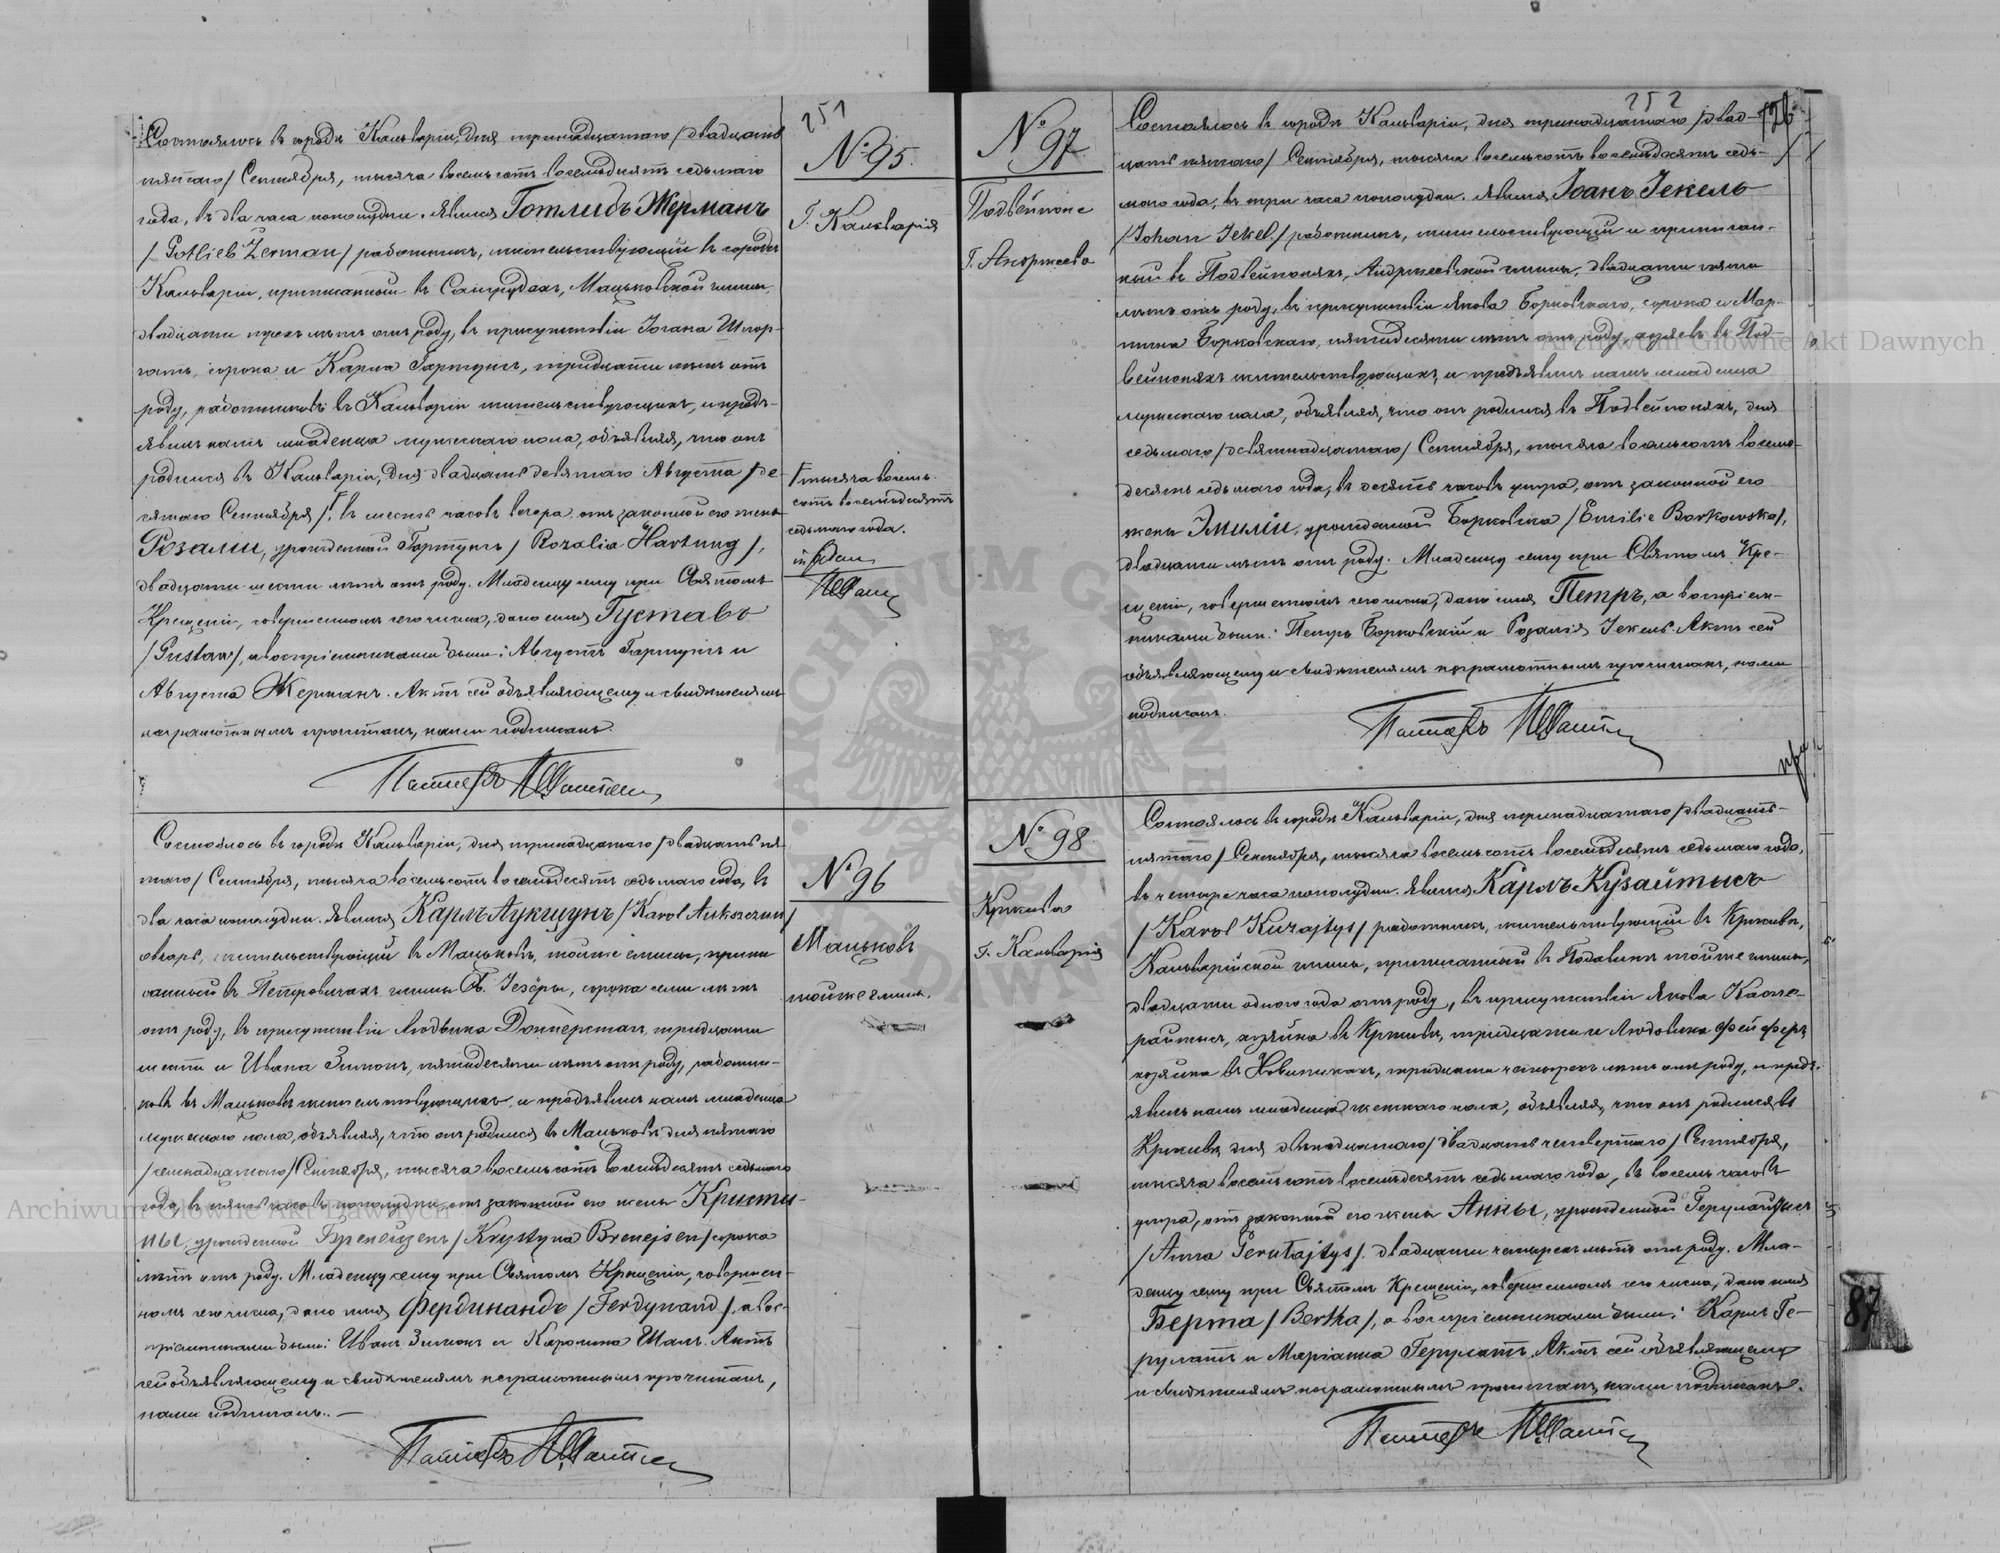 251
№ 95.
Г. Кальварія
Состоялось въ городѣ Кальваріи, дня тринадцатаго /двадцать
пятаго/ Сентября, тысяча восемьсотъ восемьдесятъ седьмаго
года, въ два часа пополудни. Явился Готлибъ Жерманъ
/Gotlieb Żerman/ работникъ, жительствующій въ городѣ
Кальваріи, приписанный въ Мацьковской гмины,
двадцати трехъ лѣтъ отъ роду, въ присутствіи Іогана
сорока и Карла Гартунгъ, тридцати лѣтъ отъ
роду, работниковъ въ Кальваріи жительствующихъ, и предъ-
явилъ намъ младенца мужескаго пола, объявляя, что онъ
родился въ Кальваріи, дня двадцать девятаго Августа /де-
сятаго Сентября/ въ шесть часовъ вечера отъ законной его жены
Розаліи, урожденной Гартунгъ /Rozalia Hartung/,
двадцати шести лѣтъ отъ роду. Младенцу сему при Святомъ
Крещеніи, совершенномъ сего числа, дано имя Густавъ
/Gustaw/, а воспріемниками были: Августъ Гартунгъ и
Августа Жерманъ. Актъ сей объявляющему и свидѣтелямъ
неграмотнымъ прочитанъ, нами подписанъ.
Пасторъ
тысяча восемь-
сотъ восемьдесятъ
седьмаго года.
№ 96
Мацьковъ
тойже гмины.
Состоялось въ городѣ Кальваріи, дня тринадцатаго /двадцать пя-
таго/ Сентября, тысяча восемьсотъ восемьдесятъ седьмаго года, въ
два часа пополудни. Явился Карлъ Аукщунъ /Karol Aukszczun/
овчаръ, жительствующій въ Мацьковѣ, тойже гмины, припи-
санный въ Петровичахъ гмины Св. Іезёры, сорока семи лѣтъ
отъ роду, въ присутствіи Людвика тридцати
шести и Ивана Зимонъ, пятидесяти лѣтъ отъ роду, работни-
ковъ въ Мацьковѣ жительствующихъ, и предъявилъ намъ младенца
мужескаго пола, объявляя, что онъ родился въ Мацьковѣ дня пятаго
/семнадцатаго/ Сентября, тысяча восемьсотъ восемьдесятъ седьмаго
года, въ пять часовъ пополудни, отъ законной его жены Кристи-
ны, урожденной Бренейзенъ /Krystyna Brenejsen/ сорока
лѣтъ отъ роду. Младенцу сему при Святомъ Крещеніи, совершен-
номъ сего числа, дано имя Фердинандъ /Ferdynand/, а вос-
пріемниками были: Иванъ Зимонъ и Каролина Шалъ. Актъ
сей объявляющему и свидѣтелямъ неграмотнымъ прочитанъ,
нами подписанъ. —
Пасторъ
252
№ 97
Подвейпоне
Г. Андржеево
Состоялось въ городѣ Кальваріи, дня тринадцатаго /двад-
цать пятаго/ Сентября, тысяча восемьсотъ восемьдесятъ седь-
маго года, въ три часа пополудни. Явился Іоанъ Іекель
/Johan Jekel/ работникъ, жительствующій и приписан-
ный въ Подвейпоняхъ, Андржеевской гмины, двадцати пяти
лѣтъ отъ роду, въ присутствіи Якова Борковскаго, сорока и Мар-
тина Борковскаго, пятидесяти лѣтъ отъ роду, въ Под-
вейпоняхъ жительствующихъ, и предъявилъ намъ младенца
мужескаго пола, объявляя, что онъ родился въ Подвейпоняхъ, дня
седьмаго /девятнадцатаго/ Сентября, тысяча восемьсотъ восемь-
десятъ седьмаго года, въ десять часовъ утра, отъ законной его
жены Эмиліи, урожденной Борковска /Emilie Borkowska/,
двадцати лѣтъ отъ роду. Младенцу сему при Святомъ Кре-
щеніи, совершенномъ сего числа, дано имя Петръ, а воспріем-
никами были: Петръ Борковскій и Розалія Іекель. Актъ сей
объявляющему и свидѣтелямъ неграмотнымъ прочитанъ, нами
подписанъ.
Пасторъ
№ 98.
Крикова
г. Кальварія
Состоялось въ городѣ Кальваріи, дня тринадцатаго /двадцать-
пятаго/ Сентября, тысяча восемьсотъ восемьдесятъ седьмаго года,
въ четыре часа пополудни. Явился Карлъ Кузайтысъ
/Karol Kuzajtys/ работникъ, жительствующій въ
Кальварійской гмины, приписанный въ тойже гмины,
двадцати одного года отъ роду, въ присутствіи Якова
хозяина въ тридцати и Людовика Фейферъ
хозяина въ Новиникахъ, тридцати четырехъ лѣтъ отъ роду, и предъ-
явилъ намъ младенца женскаго пола, объявляя, что онъ родился въ
дня двѣнадцатаго /двадцать четвертаго/ Сентября,
тысяча восемьсотъ восемьдесятъ седьмаго года, въ восемь часовъ
утра, отъ законной его жены Анны, урожденной Герулайтысъ
/Anna Gerulajtys/. двадцати четырехъ лѣтъ отъ роду. Мла-
денцу сему при Святомъ Крещеніи, совершенномъ сего числа, дано имя
Берта /Bertha/, а воспріемниками были: Карлъ Ге-
рулатъ и Маріанна Герулатъ. Актъ сей объявляющему
и свидѣтелямъ неграмотнымъ прочитанъ, нами подписанъ.
Пасторъ
87
Archiwum Główne Akt Dawnych
Archiwum Główne Akt Dawnych